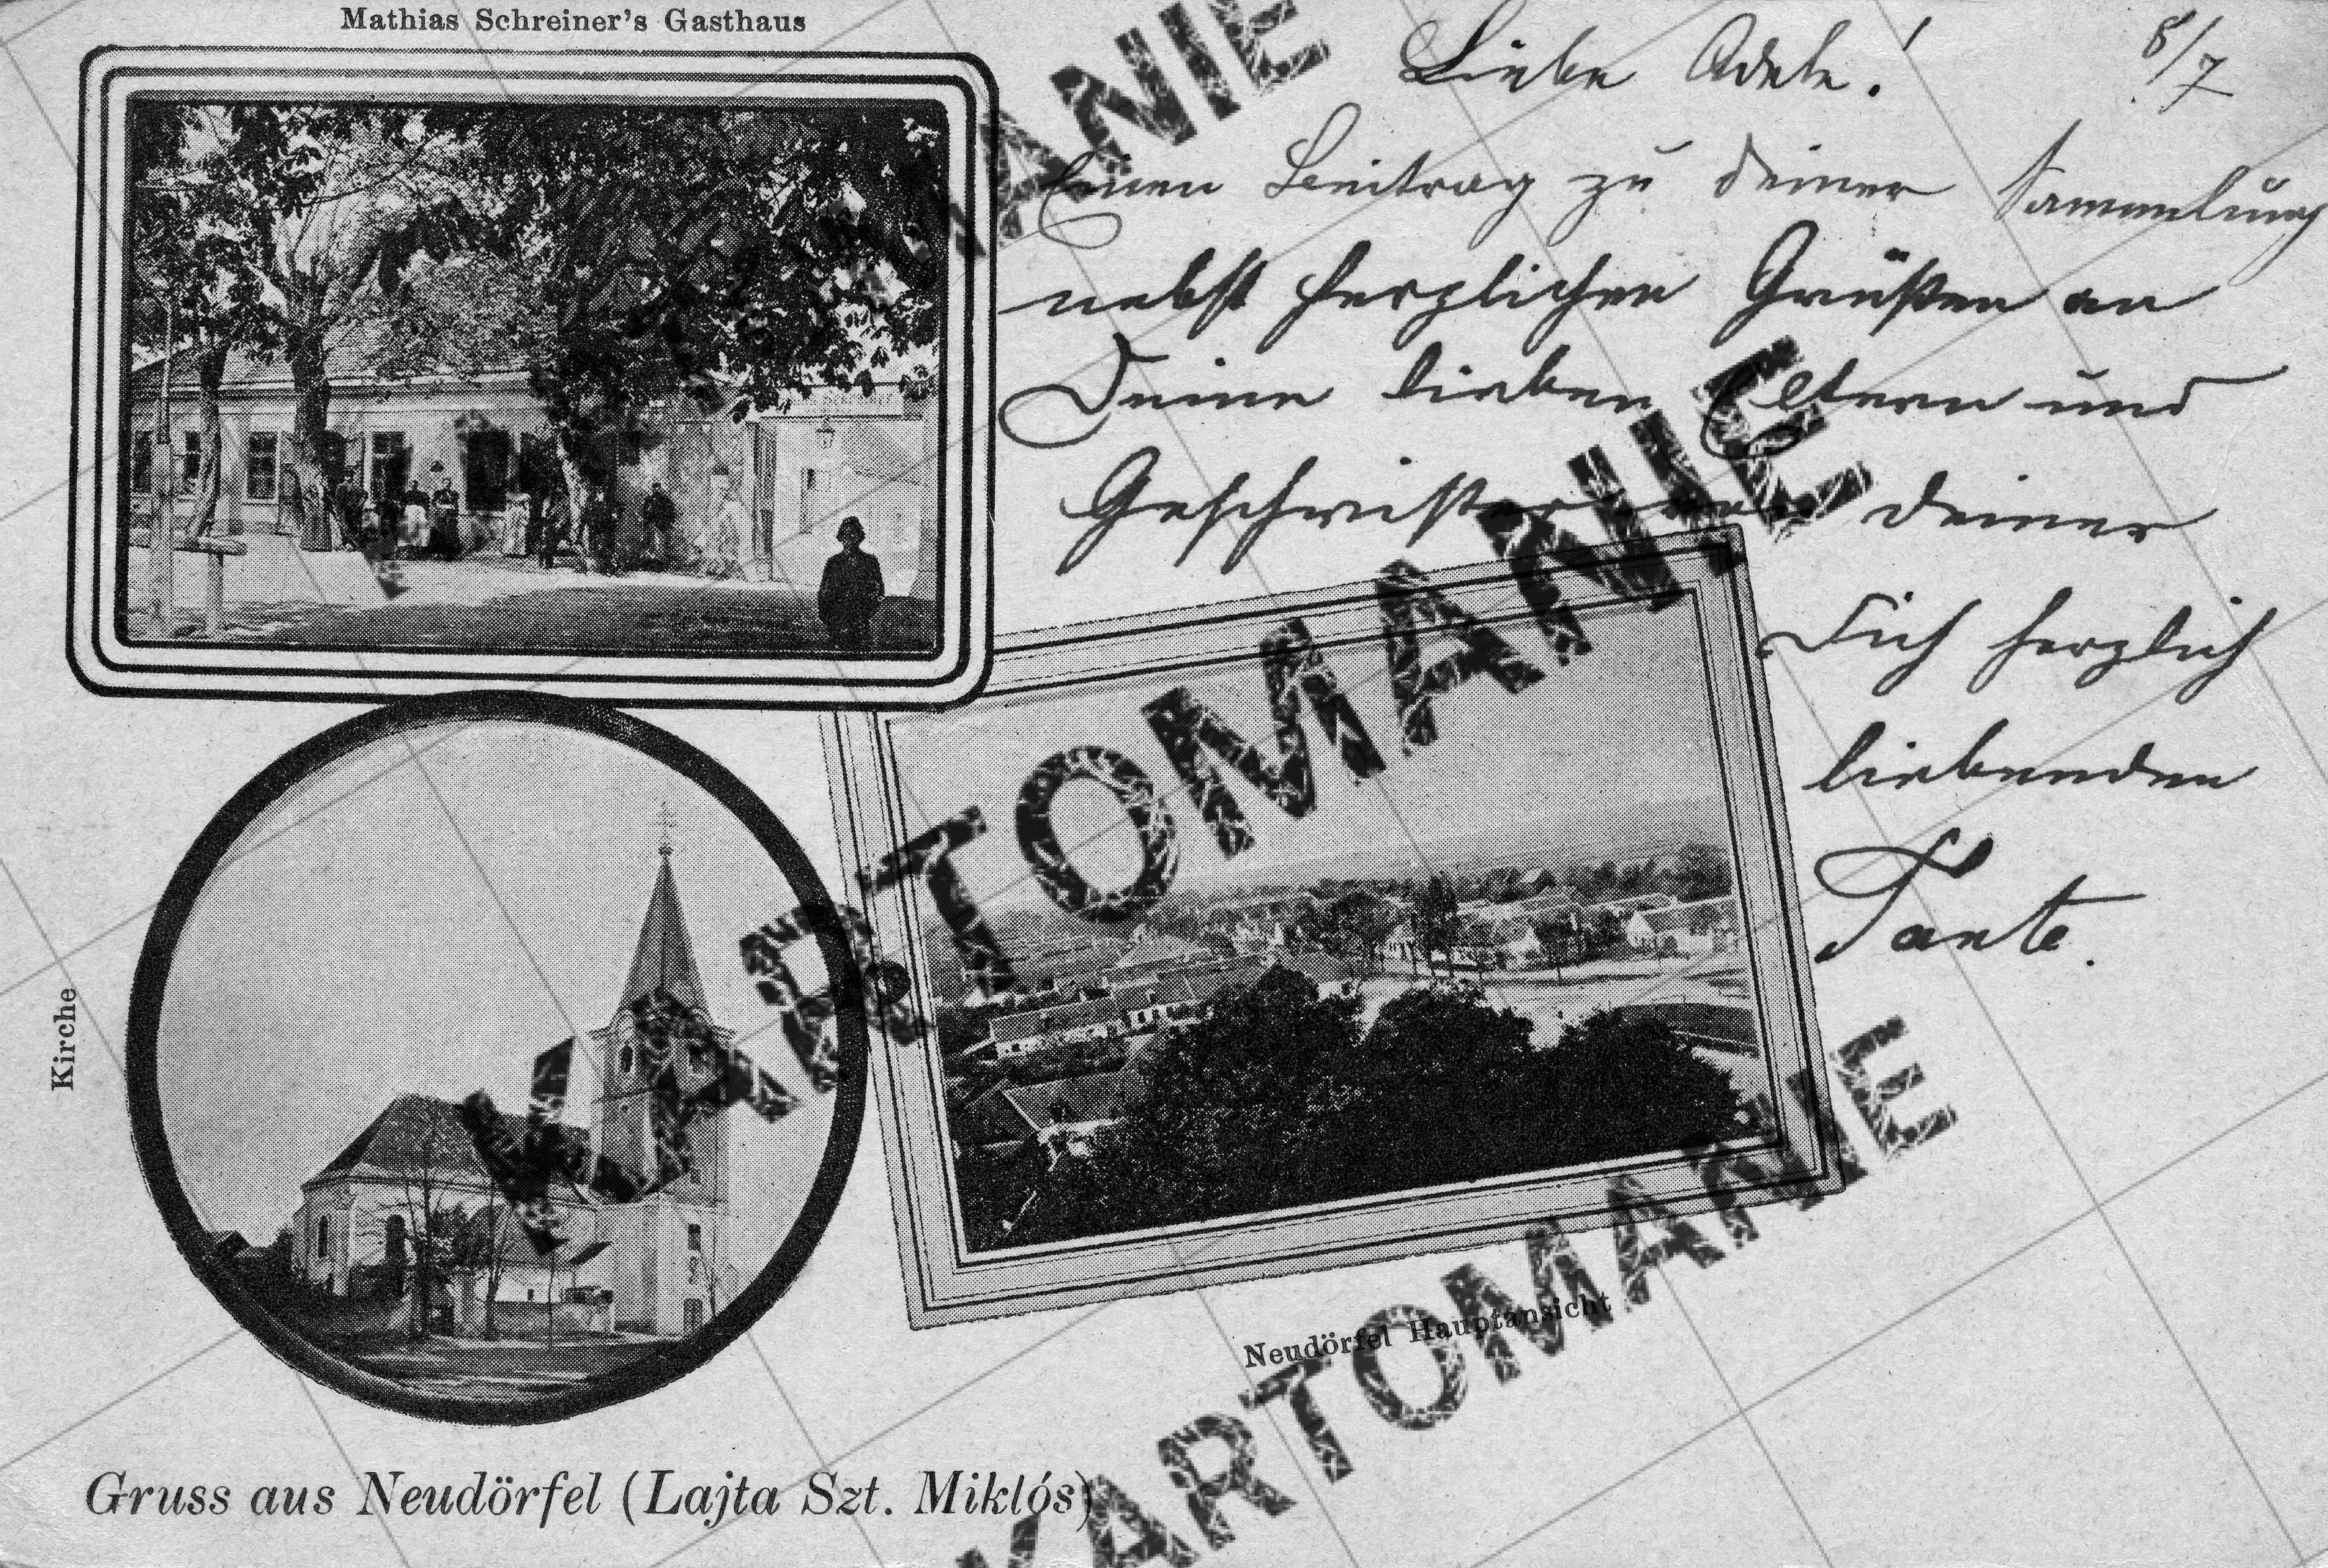 Mathias Schreiner's Gasthaus
8/7
Liebe Adele!
Einen Beitrag zu deiner Sammlung
nebst herzlichen Grüßen an
Deine lieben Eltern und
Geschwister von deiner
Dich herzlich
liebenden
Tante.
Kirche
Neudörfel Hauptansicht
Gruss aus Neudörfel (Lajta Szt. Miklós)
KARTOMANIE
KARTOMANIE
KARTOMANIE